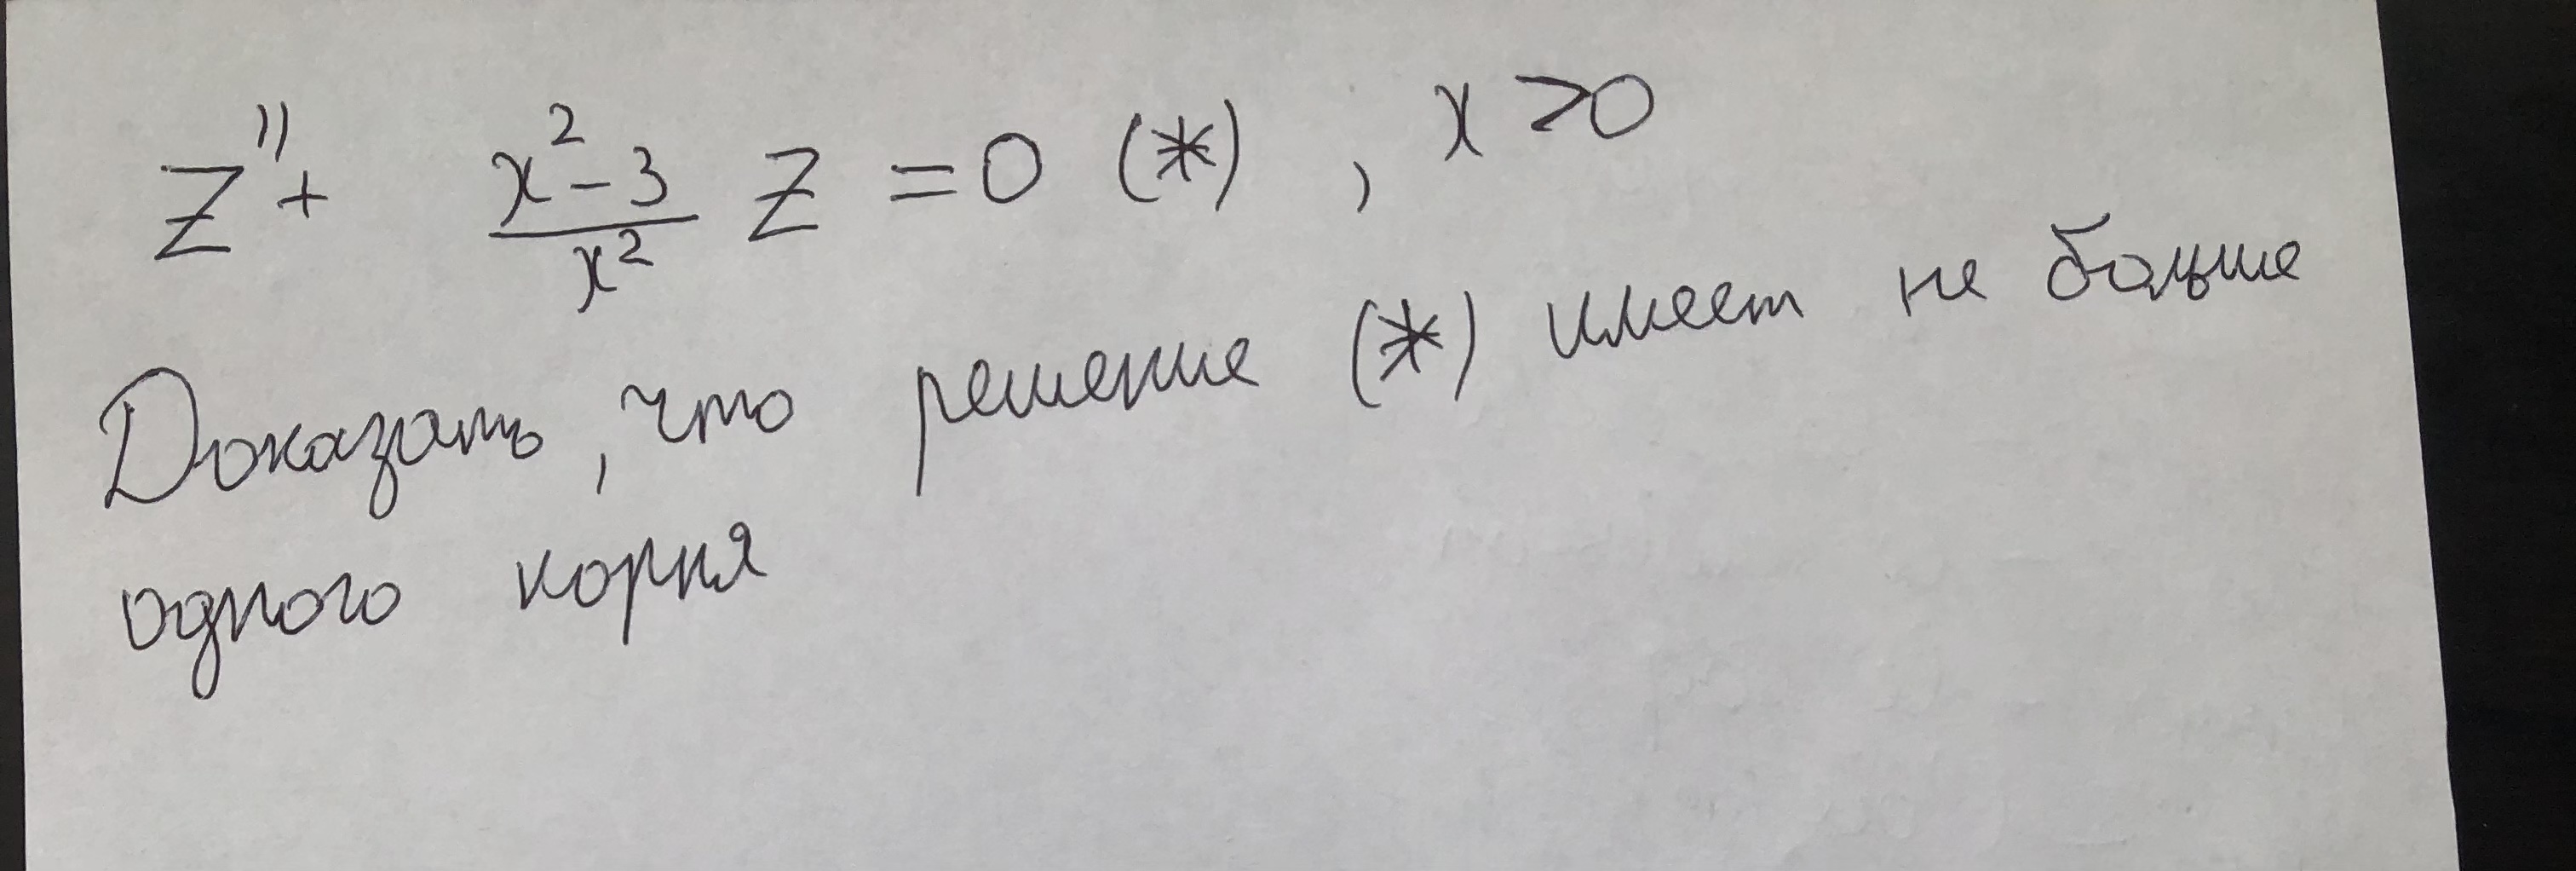 z'' + \frac{x^2-3}{x^2} z = 0 (*) , x > 0
Доказать, что решение (*) имеет не больше
одного корня